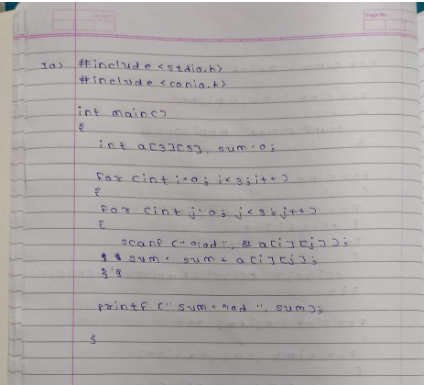 Page No.
1a) #include <stdio.h>
#include <conio.h>
int main()
{
int a[3][3], sum=0;
for (int i=0; i<3; i++)
{
for (int j=0; j<3; j++)
{
scanf ("%d", & a[i][j]);
sum = sum + a[i][j];
}}
printf (" sum = %d ", sum);
}